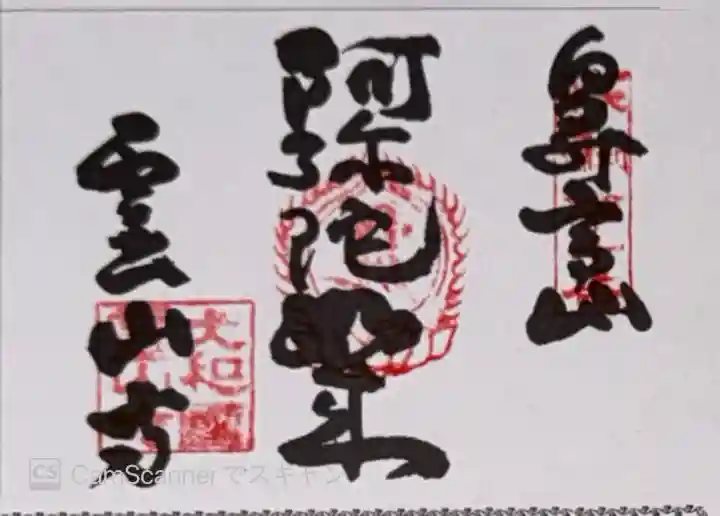 鼻高山
阿弥陀如来
霊山寺
大和國
CS CamScanner でスキャン